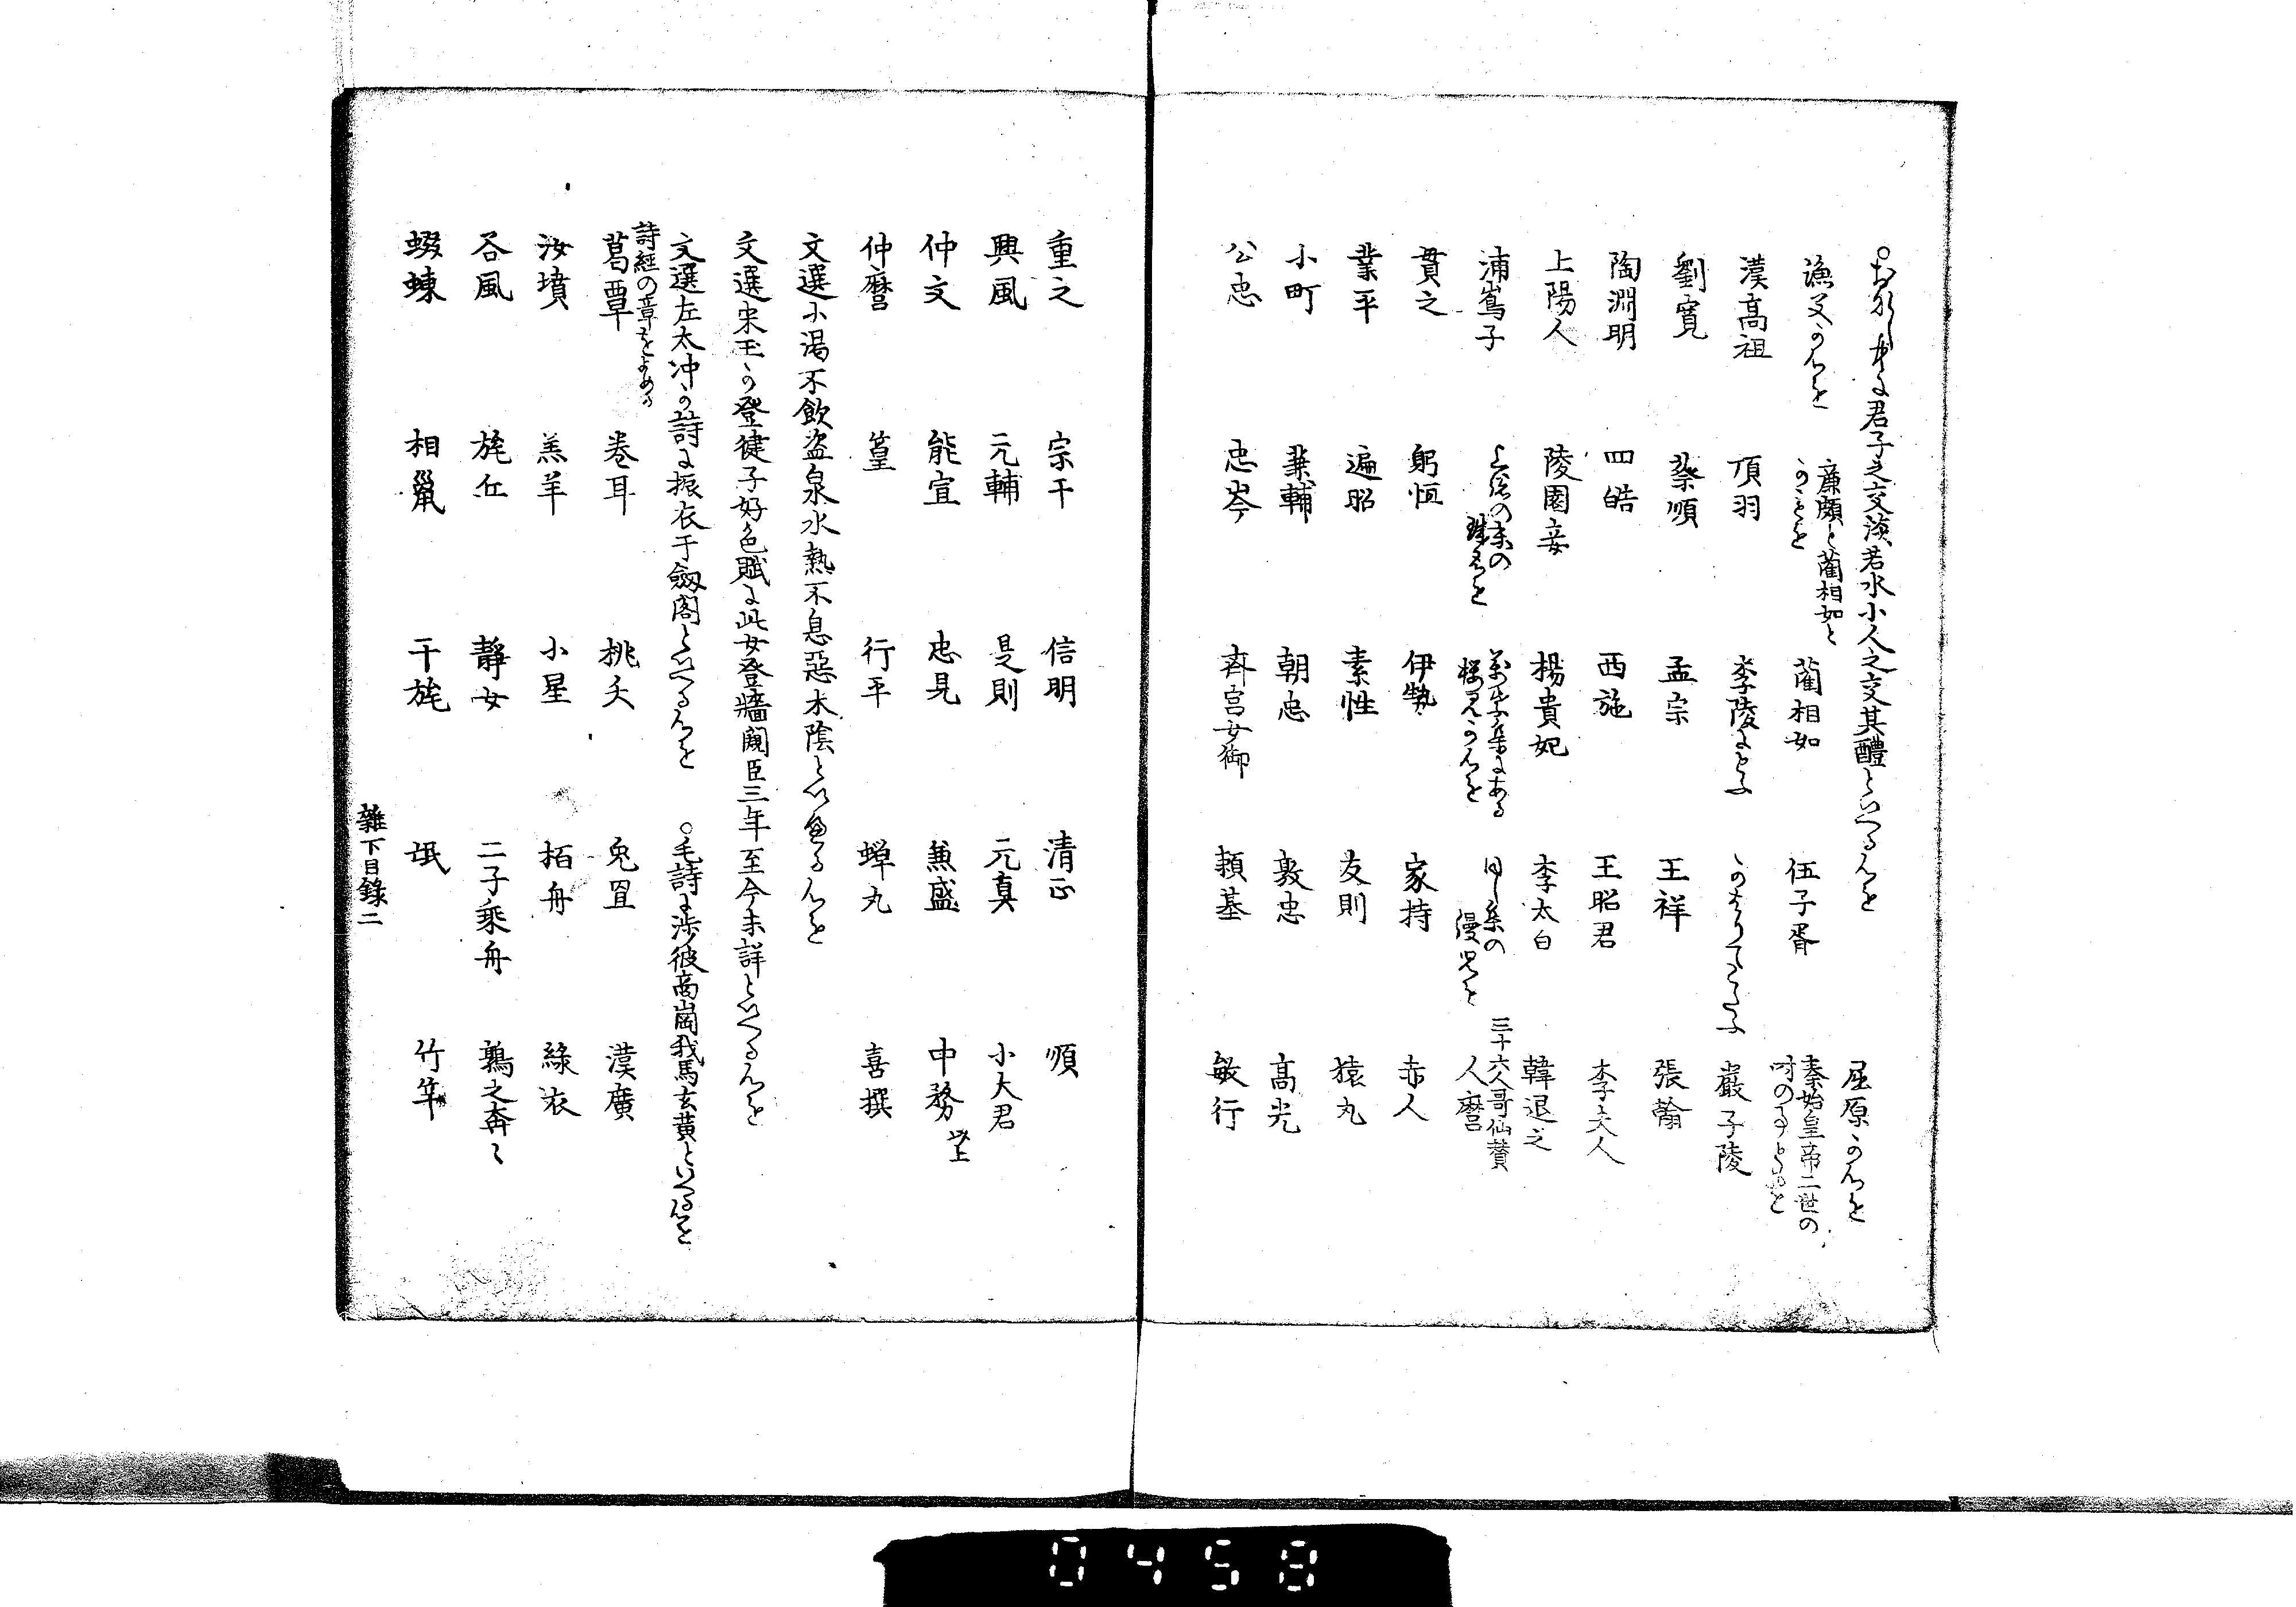 ○おなし書に君子之交淡若水小人之交其醴といへる心を　屈原か心を
漁父か心を　廉頗と藺相如とのことを　藺相如　伍子胥　秦始皇帝二世の時のことを
漢高祖　項羽　李陵にをくる　かはりてこたふ　嚴子陵
劉寛　蔡順　孟宗　王祥　張翰
陶淵明　四皓　西施　王昭君　李夫人
上陽人　陵園妾　楊貴妃　李太白　韓退之
浦嶌子　上総の末の珠名を　萬葉集にある桜児か心を　同し集の縵児を　三十六人哥仙賛　人麿
貫之　躬恒　伊勢　家持　赤人
業平　遍昭　素性　友則　猿丸
小町　兼輔　朝忠　敦忠　高光
公忠　忠岑　斉宮女御　頼基　敏行
重之　宗于　信明　清正　順
興風　元輔　是則　元真　小大君
仲文　能宣　忠見　兼盛　中務 以上
仲麿　篁　行平　蝉丸　喜撰
文選小渇不飲盗泉水熱不息惡木陰といへる心を
文選宋玉か登徒子好色賦に此女登牆闚臣三年至今未許といへる心を
文選左太冲か詩に振衣千仞岡といへる心を　○毛詩に渉彼高崗我馬玄黄といへる心を
詩經の章をよめる
葛覃　巻耳　桃夭　兎罝　漢廣
汝墳　羔羊　小星　柏舟　緑衣
谷風　旄丘　靜女　二子乘舟　鶉之奔〻
蝃蝀　相鼠　干旄　氓　竹竿
雜下目録二
0458